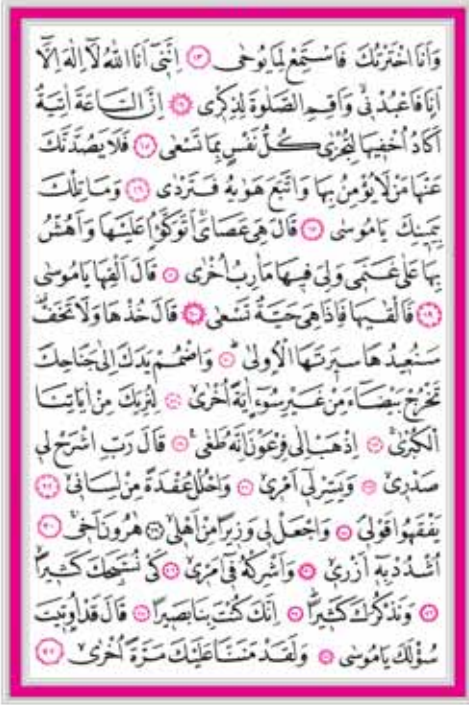 وَاَنَا اخْتَرْتُكَ فَاسْتَمِعْ لِمَا يُوحٰى ﴿١٣﴾ اِنَّنٓى اَنَا اللّٰهُ لَٓا اِلٰهَ اِلَّٓا
اَنَا فَاعْبُدْنٖى وَاَقِمِ الصَّلٰوةَ لِذِكْرٖى ﴿١٤﴾ اِنَّ السَّاعَةَ اٰتِيَةٌ
اَكَادُ اُخْفٖيهَا لِتُجْزٰى كُلُّ نَفْسٍ بِمَا تَسْعٰى ﴿١٥﴾ فَلَا يَصُدَّنَّكَ
عَنْهَا مَنْ لَا يُؤْمِنُ بِهَا وَاتَّبَعَ هَوٰيهُ فَتَرْدٰى ﴿١٦﴾ وَمَا تِلْكَ
بِيَمٖينِكَ يَا مُوسٰى ﴿١٧﴾ قَالَ هِىَ عَصَاىَ اَتَوَكَّؤُا عَلَيْهَا وَاَهُشُّ
بِهَا عَلٰى غَنَمٖى وَلِىَ فٖيهَا مَاٰرِبُ اُخْرٰى ﴿١٨﴾ قَالَ اَلْقِهَا يَا مُوسٰى
﴿١٩﴾ فَاَلْقٰيهَا فَاِذَا هِىَ حَيَّةٌ تَسْعٰى ﴿٢٠﴾ قَالَ خُذْهَا وَلَا تَخَفْ
سَنُعٖيدُهَا سٖيرَتَهَا الْاُولٰى ﴿٢١﴾ وَاضْمُمْ يَدَكَ اِلٰى جَنَاحِكَ
تَخْرُجْ بَيْضَٓاءَ مِنْ غَيْرِ سُٓوءٍ اٰيَةً اُخْرٰى ﴿٢٢﴾ لِنُرِيَكَ مِنْ اٰيَاتِنَا
الْكُبْرٰى ﴿٢٣﴾ اِذْهَبْ اِلٰى فِرْعَوْنَ اِنَّهُ طَغٰى ﴿٢٤﴾ قَالَ رَبِّ اشْرَحْ لٖى
صَدْرٖى ﴿٢٥﴾ وَيَسِّرْ لٖٓى اَمْرٖى ﴿٢٦﴾ وَاحْلُلْ عُقْدَةً مِنْ لِسَانٖى ﴿٢٧﴾
يَفْقَهُوا قَوْلٖى ﴿٢٨﴾ وَاجْعَلْ لٖى وَزٖيرًا مِنْ اَهْلٖى ﴿٢٩﴾ هٰرُونَ اَخٖى ﴿٣٠﴾
اُشْدُدْ بِهٖٓ اَزْرٖى ﴿٣١﴾ وَاَشْرِكْهُ فٖٓى اَمْرٖى ﴿٣٢﴾ كَىْ نُسَبِّحَكَ كَثٖيرًا
﴿٣٣﴾ وَنَذْكُرَكَ كَثٖيرًا ﴿٣٤﴾ اِنَّكَ كُنْتَ بِنَا بَصٖيرًا ﴿٣٥﴾ قَالَ قَدْ اُوتٖيتَ
سُؤْلَكَ يَا مُوسٰى ﴿٣٦﴾ وَلَقَدْ مَنَنَّا عَلَيْكَ مَرَّةً اُخْرٰى ﴿٣٧﴾